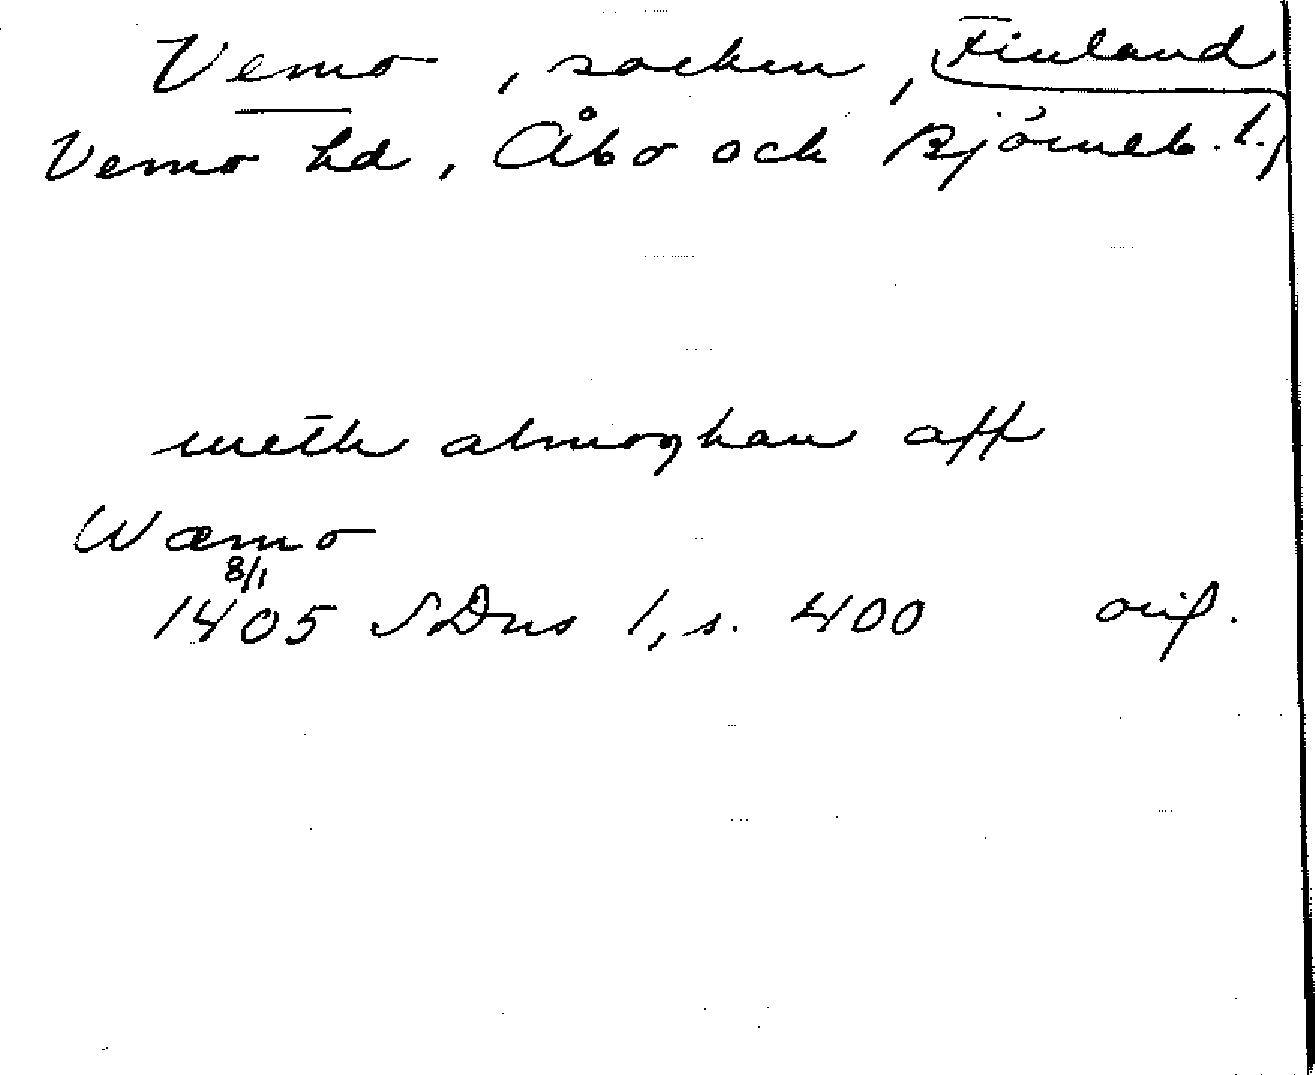 Vemo, socken, Finland
Vemo hd, Åbo och Björneb. l.,
meth almoghan aff
Wæmo
8/1
1405 SDns 1, s. 400 orig.